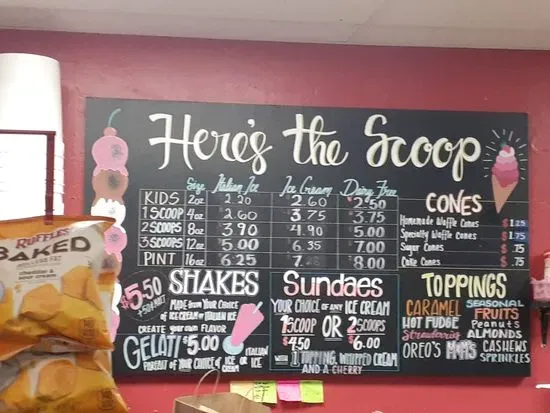 Here's the Scoop
Size Italian Ice Ice Cream Dairy Free
KIDS 2oz 2.20 2.60 $2.50
1 SCOOP 4oz 2.60 3.75 $3.75
2 SCOOPS 8oz 3.90 4.90 $5.00
3 SCOOPS 12oz 5.00 6.35 7.00
PINT 16oz 6.25 8.00
CONES
Homemade Waffle Cones $1.25
Specialty Waffle Cones $1.75
Sugar Cones $.75
Cake Cones $.75
SHAKES
$5.50
MADE FROM YOUR CHOICE
OF ICE CREAM OR ITALIAN ICE
CREATE your own FLAVOR
GELATI $5.00
PARFAIT OF YOUR CHOICE OF ICE OR ICE
ITALIAN
Sundaes
YOUR CHOICE of ANY ICE CREAM
1 SCOOP OR 2 SCOOPS
$4.50 $6.00
WITH 1 TOPPING, WHIPPED CREAM
AND A CHERRY
TOPPINGS
CARAMEL
HOT FUDGE
Strawberries
OREO'S M&M'S
SEASONAL
FRUITS
Peanuts
ALMONDS
CASHEWS
SPRINKLES
RUFFLES
BAKED
cheddar &
sour cream